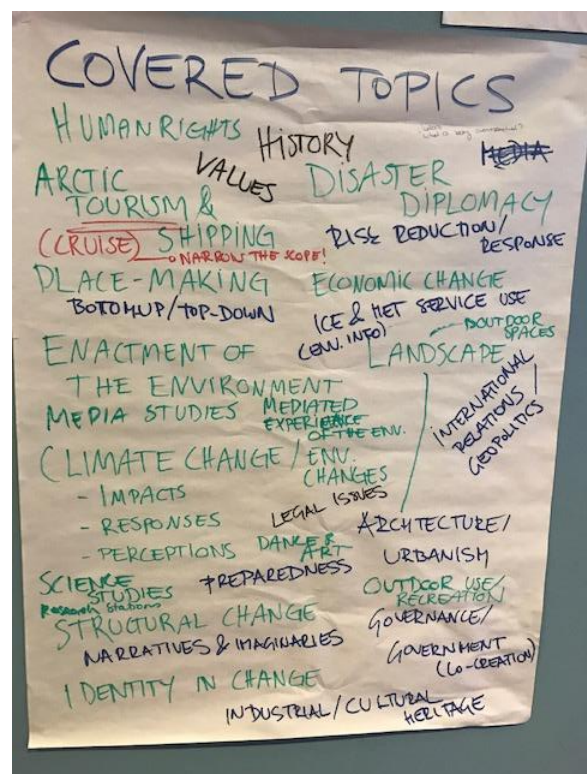 COVERED TOPICS
HUMAN RIGHTS
HISTORY
VALUES
MEDIA
ARCTIC
TOURISM &
(CRUISE) SHIPPING
NARROW THE SCOPE!
DISASTER
DIPLOMACY
RISK REDUCTION/
RESPONSE
PLACE-MAKING
BOTOMUP/TOP-DOWN
ECONOMIC CHANGE
ICE & MET SERVICE USE
(ENV. INFO)
OUTDOOR
SPACES
LANDSCAPE
ENACTMENT OF
THE ENVIRONMENT
MEDIA STUDIES
MEDIATED
EXPERIENCE
OF THE ENV.
INTERNATIONAL
RELATIONS /
GEOPOLITICS
CLIMATE CHANGE / ENV.
CHANGES
- IMPACTS
- RESPONSES
- PERCEPTIONS
LEGAL ISSUES
DANCE &
ART
ARCHITECTURE/
URBANISM
SCIENCE
STUDIES
Research stations
PREPAREDNESS
OUTDOOR USE/
RECREATION
STRUCTURAL CHANGE
NARRATIVES & IMAGINARIES
GOVERNANCE/
GOVERNMENT
(CO-CREATION)
IDENTITY IN CHANGE
INDUSTRIAL/CULTURAL
HERITAGE